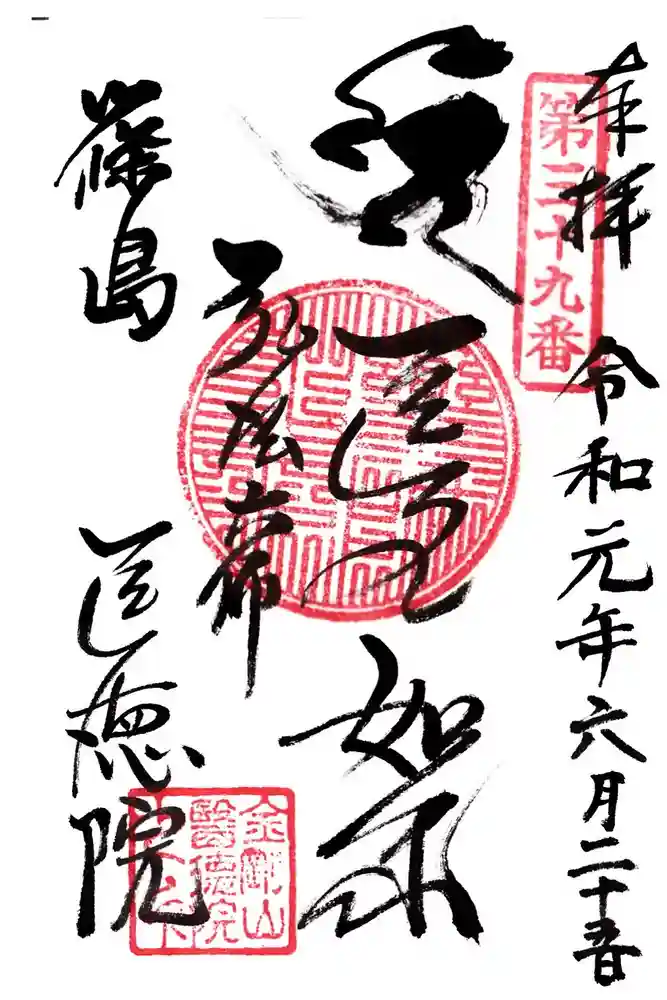 奉拝 令和元年六月二十五日
第三十九番
如来
弘法大師
篠島 医徳院
金剛山
醫德院